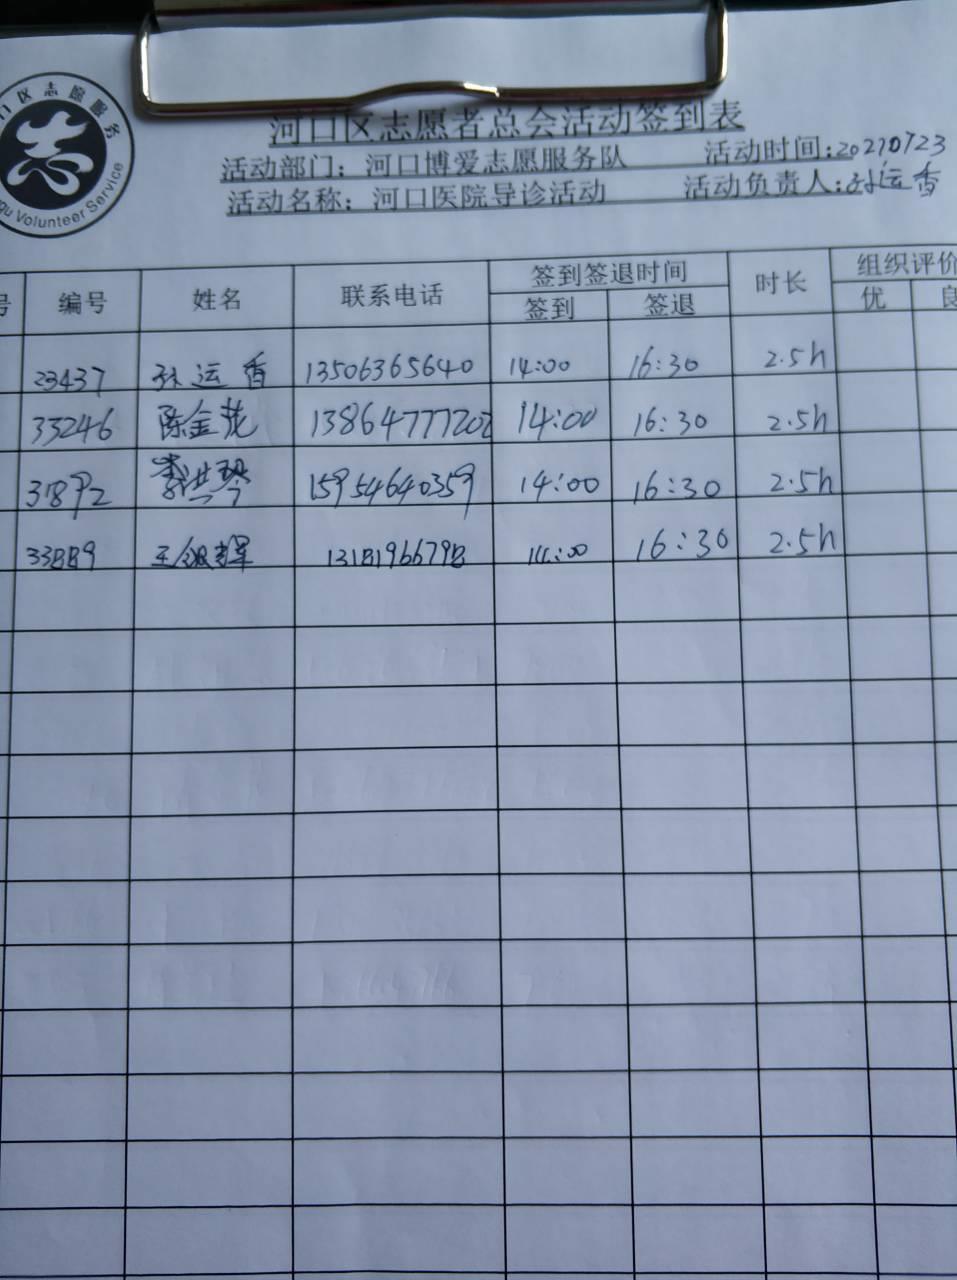 口区志愿服务
gu Volunteer Service
河口区志愿者总会活动签到表
活动部门：河口博爱志愿服务队 活动时间:
活动名称：河口医院导诊活动 活动负责人:孙运香
号 编号 姓名 联系电话 签到签退时间 时长 组织评价
签到 签退 优 良
23437 孙运香 13506365640 14:00 16:30 2.5h
33246 陈金花 13864777202 14:00 16:30 2.5h
31892 15954640359 14:00 16:30 2.5h
33889 王 13181966798 14:00 16:30 2.5h